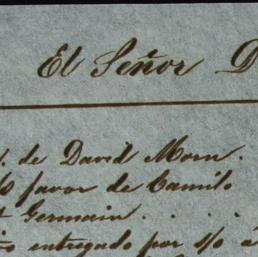 El Señor D
. de David Morn.
/o favor de Camilo
t Germain . . . .
entregado por s/o á